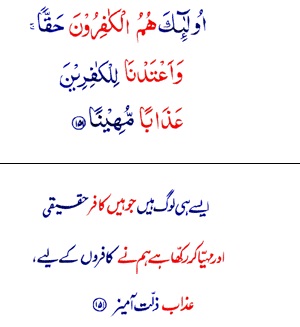 اُولٰٓئِكَ هُمُ الْكٰفِرُوْنَ حَقًّا ۚ
وَاَعْتَدْنَا لِلْكٰفِرِيْنَ
عَذَابًا مُّهِيْنًا ﴿۱۵۱﴾
ایسے ہی لوگ ہیں جو ہیں کافر حقیقی
اور مہیّا کر رکھا ہے ہم نے کافروں کے لیے،
عذاب ذلّت آمیز ﴿۱۵۱﴾